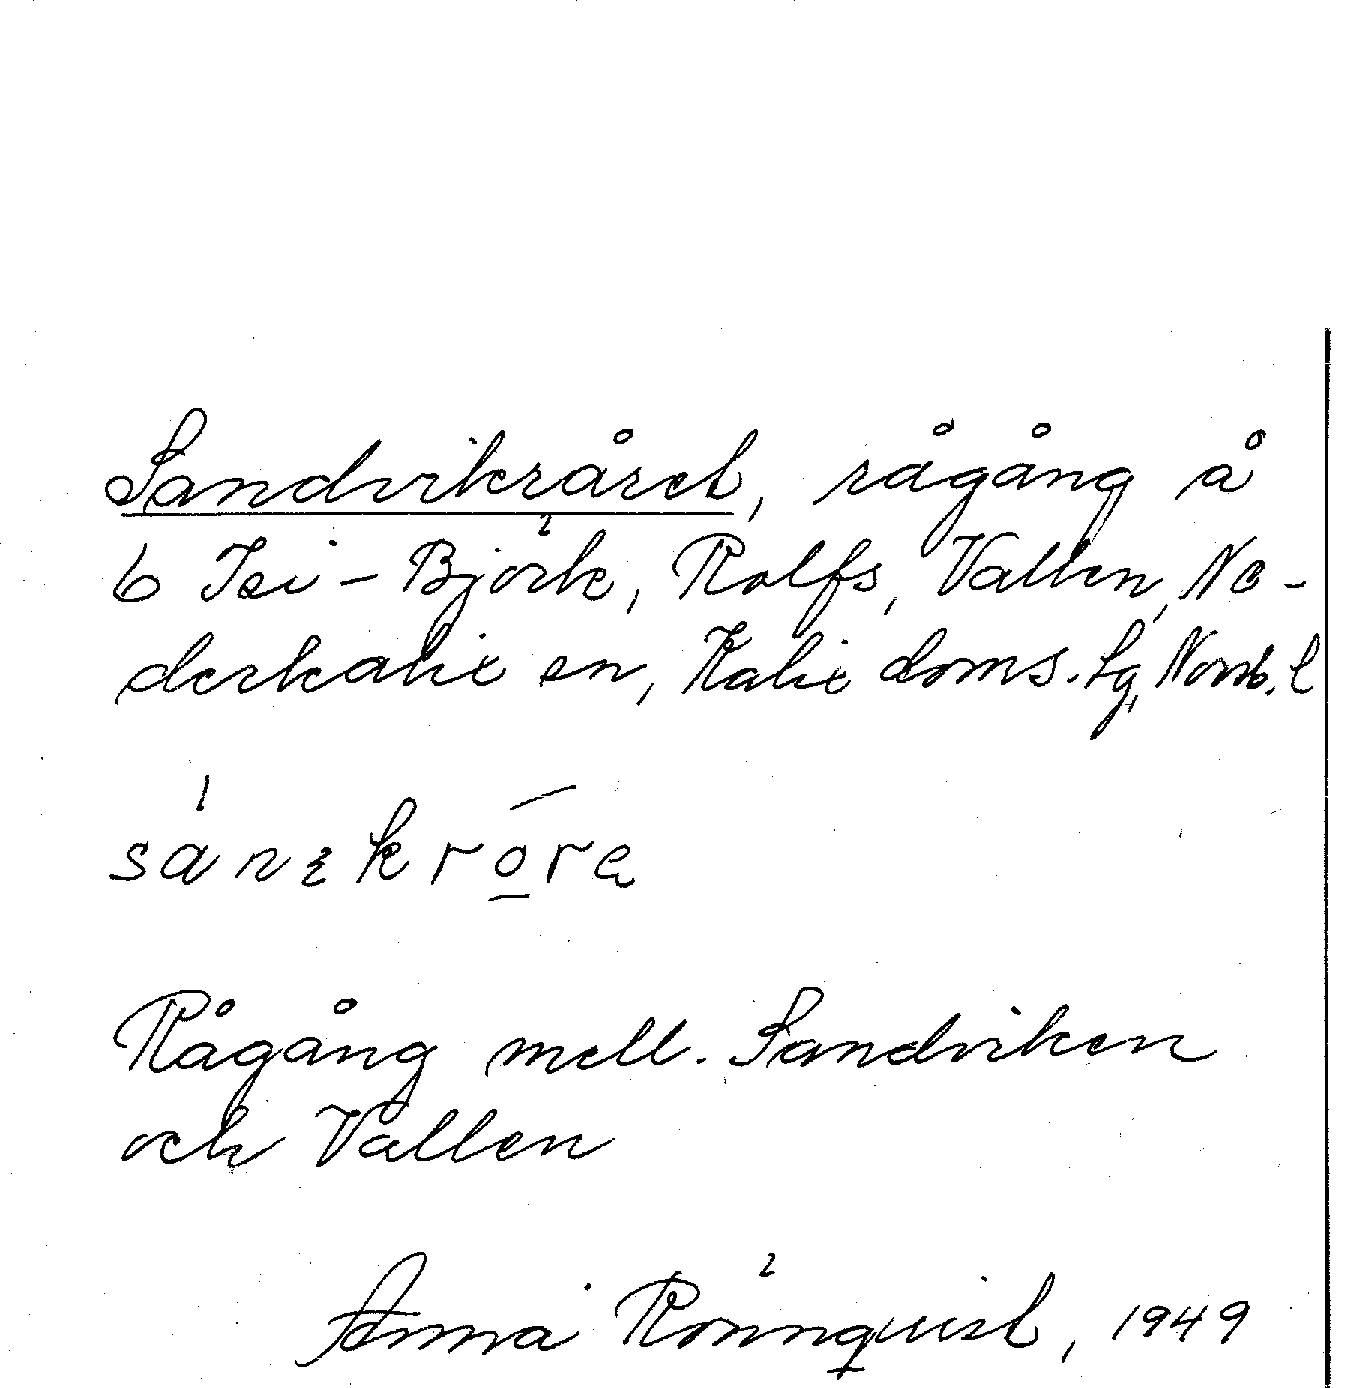 Sandvikråret, rågång å
6 Isi-Björk, Rolfs, Vallen, Ne-
derkalix sn, Kalix doms. lg, Norrb. l
Rågång mell. Sandviken
och Vallen
Anna Rönnquist, 1949